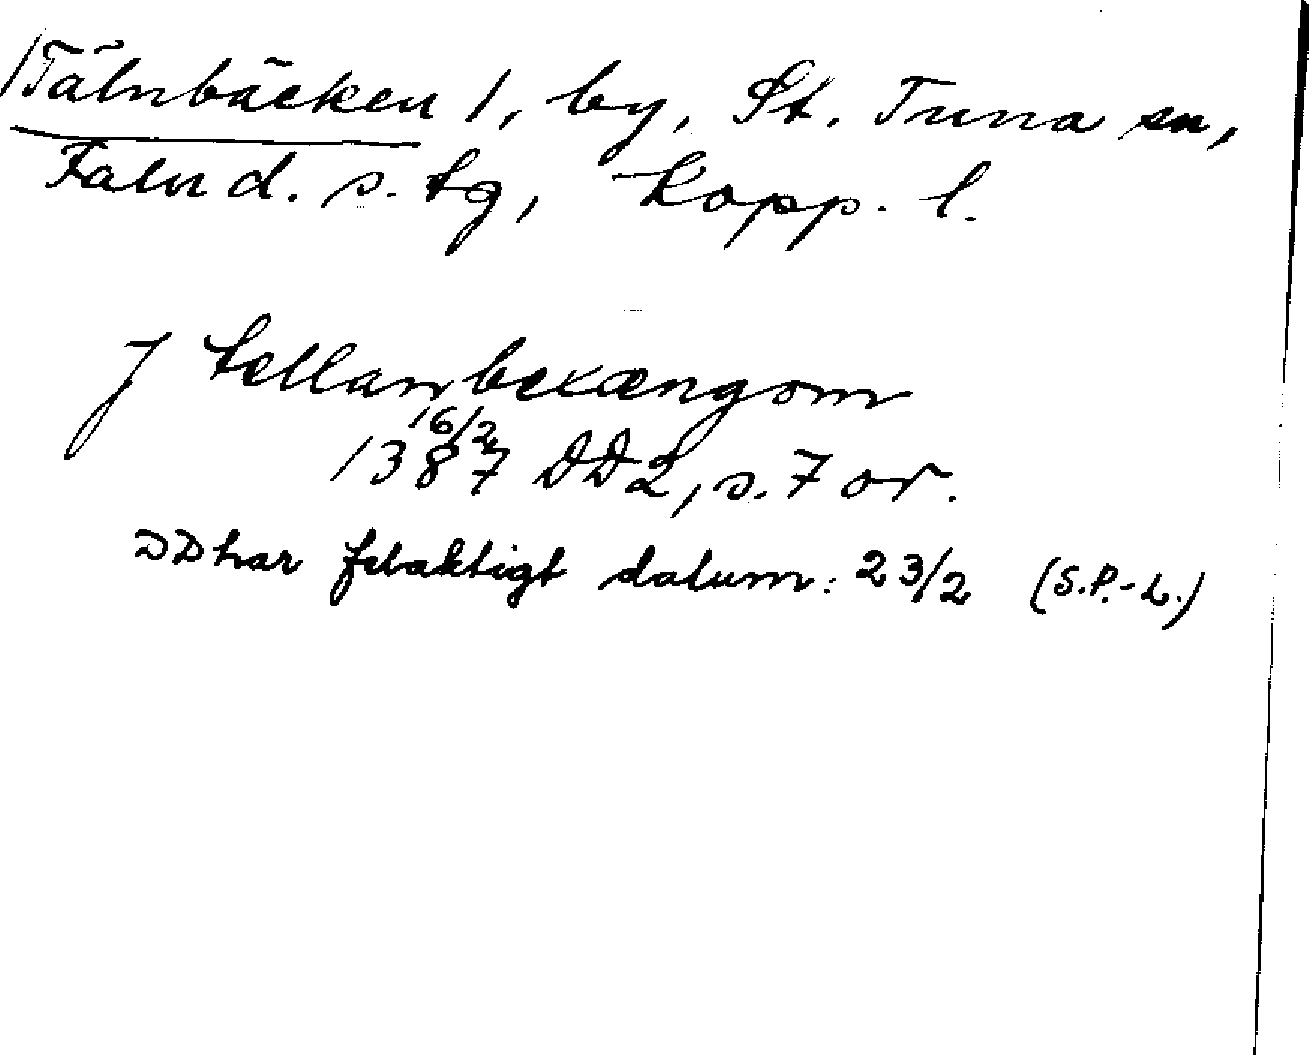 /Tälnbäcken/, by, St. Tuna sn,
Falu d. s. tg, Kopp. l.
J tellanbexængom
16/2
1387 DD2, s. 7 or.
DD har felaktigt datum: 23/2 (S.P.-L.)